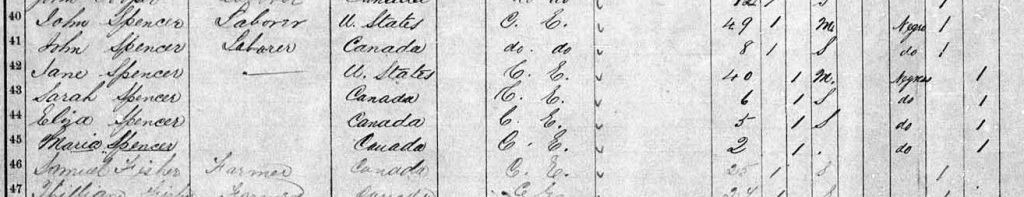 Canada do do 12 1 S 1
40 John Spencer Laborer U. States C. E. 49 1 M. Negro 1
41 John Spencer Laborer Canada do. do 8 1 S do 1
42 Jane Spencer — U. States C. E. 40 1 M. Negress 1
43 Sarah Spencer Canada C. E. 6 1 S do 1
44 Eliza Spencer Canada C. E. 5 1 S do 1
45 Maria Spencer Canada C. E. 2 1 . do 1
46 Samuel Fisher Farmer Canada C. E. 25 1 S 1
47 William Farmer Canada 24 1 S 1